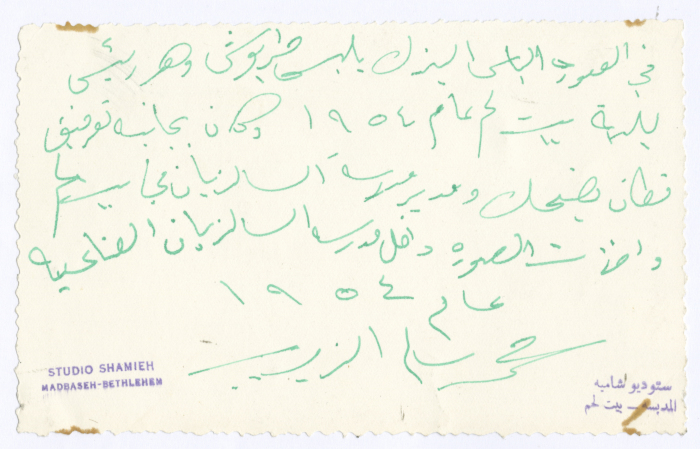 في الصورة الياس البندك يلبس طربوش وهو رئيس
بلدية بيت لحم عام ١٩٥٤ وكان بجانبه توفيق
قطان يضحك ومدير مدرسة السالزيان
واخذت الصورة داخل مدرسة السالزيان الصناعية
عام ١٩٥٤
سالم الزير
STUDIO SHAMIEH
MADBASEH-BETHLEHEM
ستوديو شاميه
المدبسه - بيت لحم